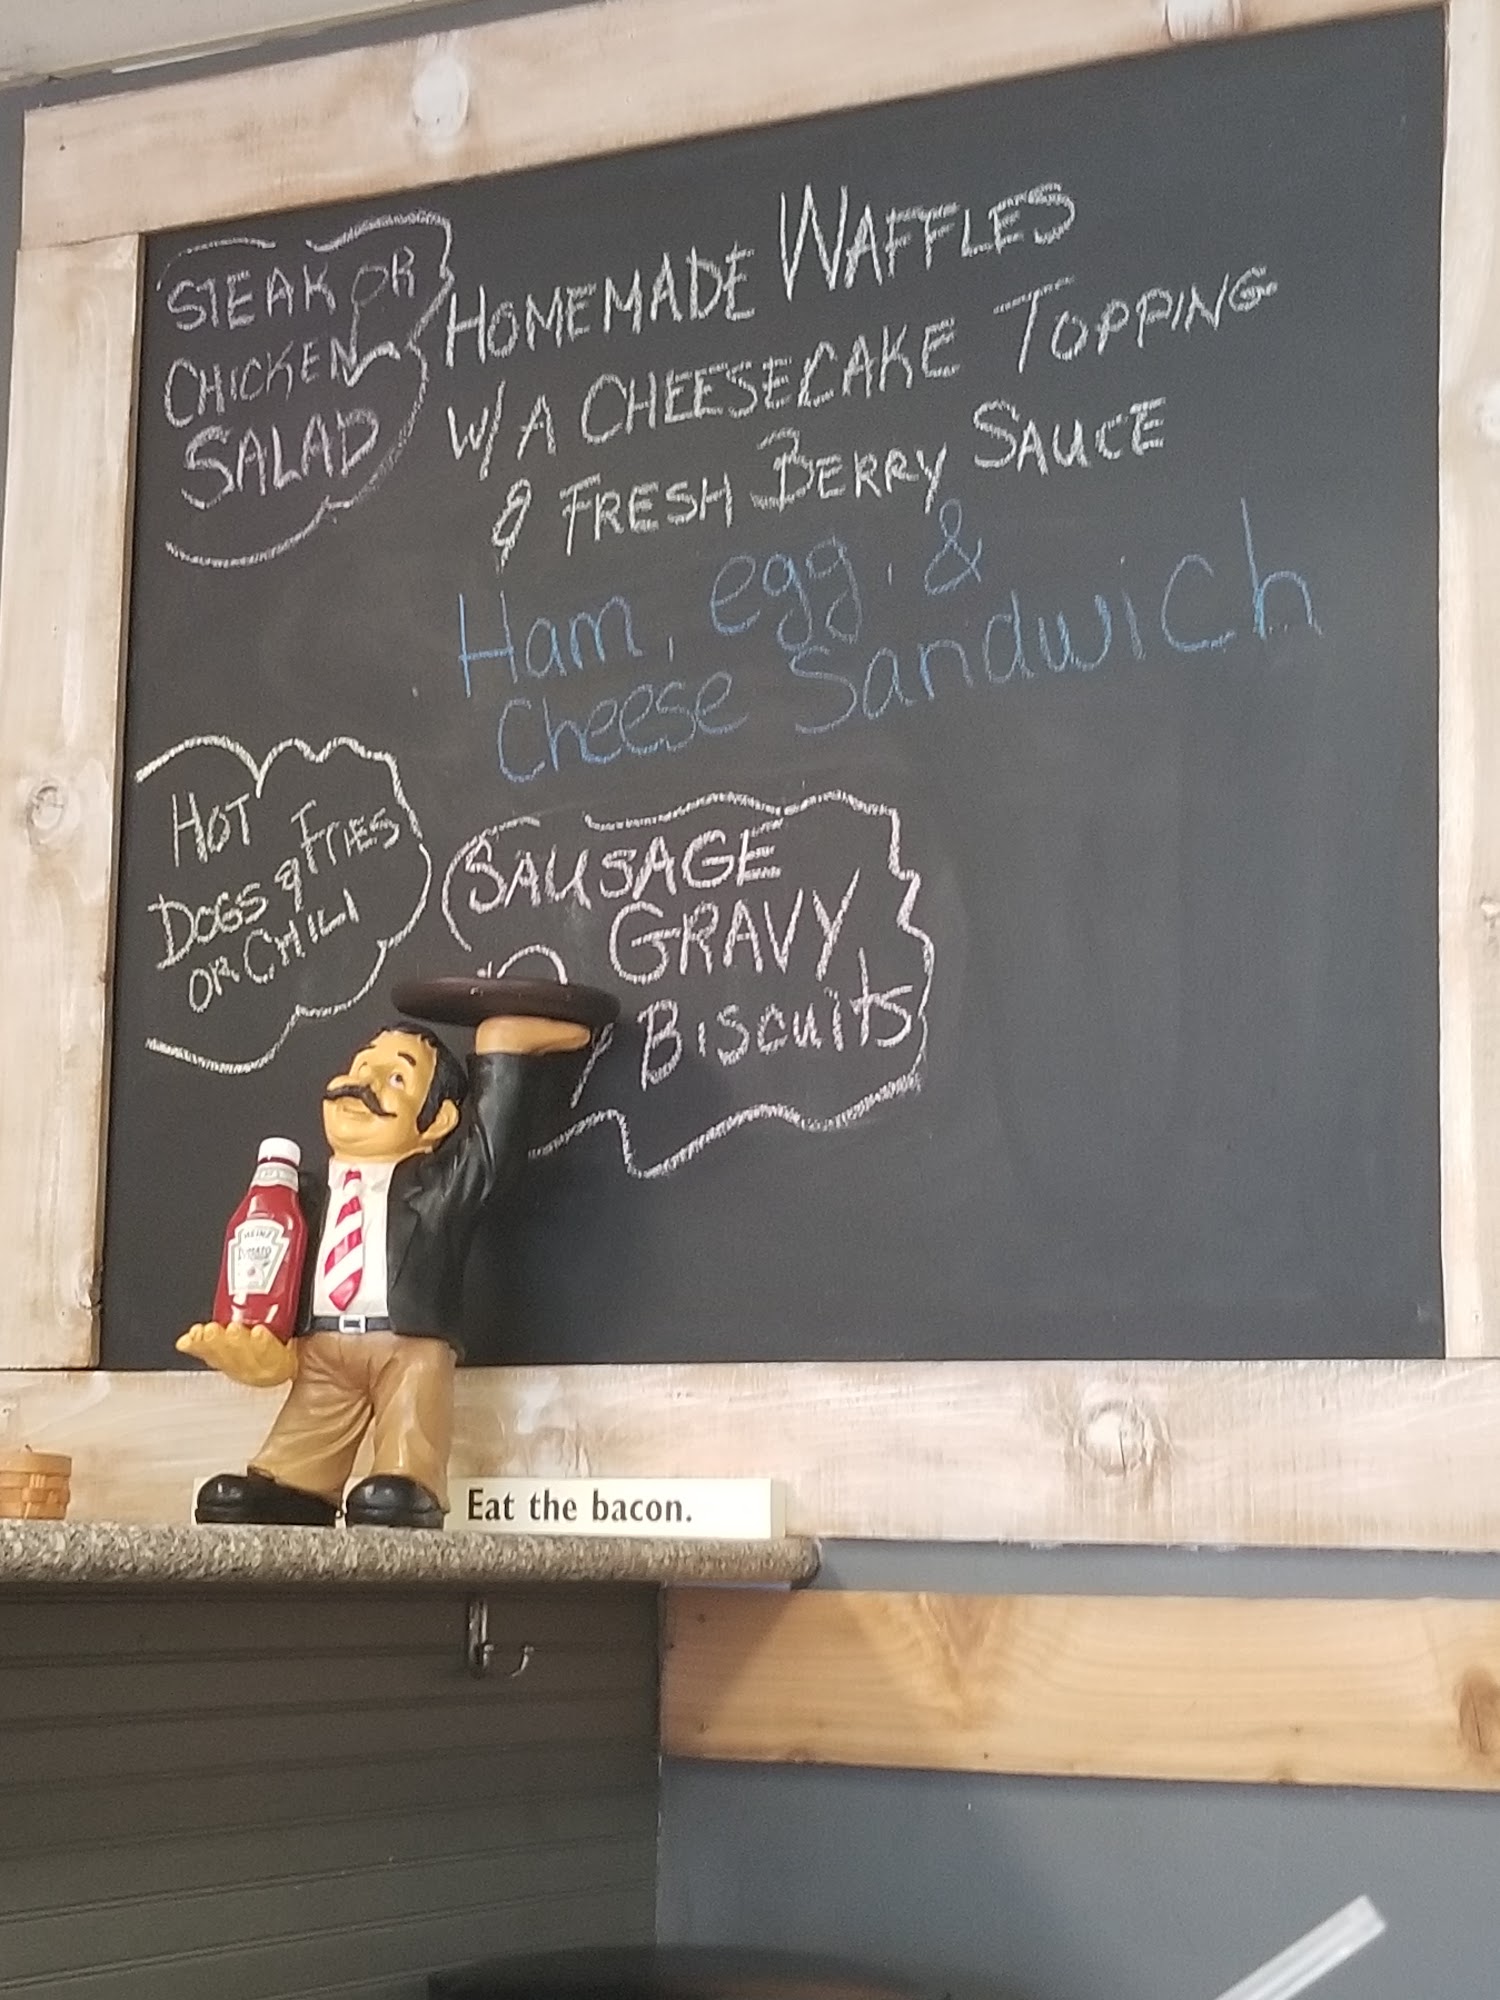 STEAK OR
CHICKEN
SALAD
HOMEMADE WAFFLES
W/A CHEESECAKE TOPPING
& FRESH BERRY SAUCE
Ham, egg, &
Cheese Sandwich
HOT
DOGS & FRIES
OR CHILI
SAUSAGE
GRAVY
& BISCUITS
HEINZ
TOMATO
Eat the bacon.